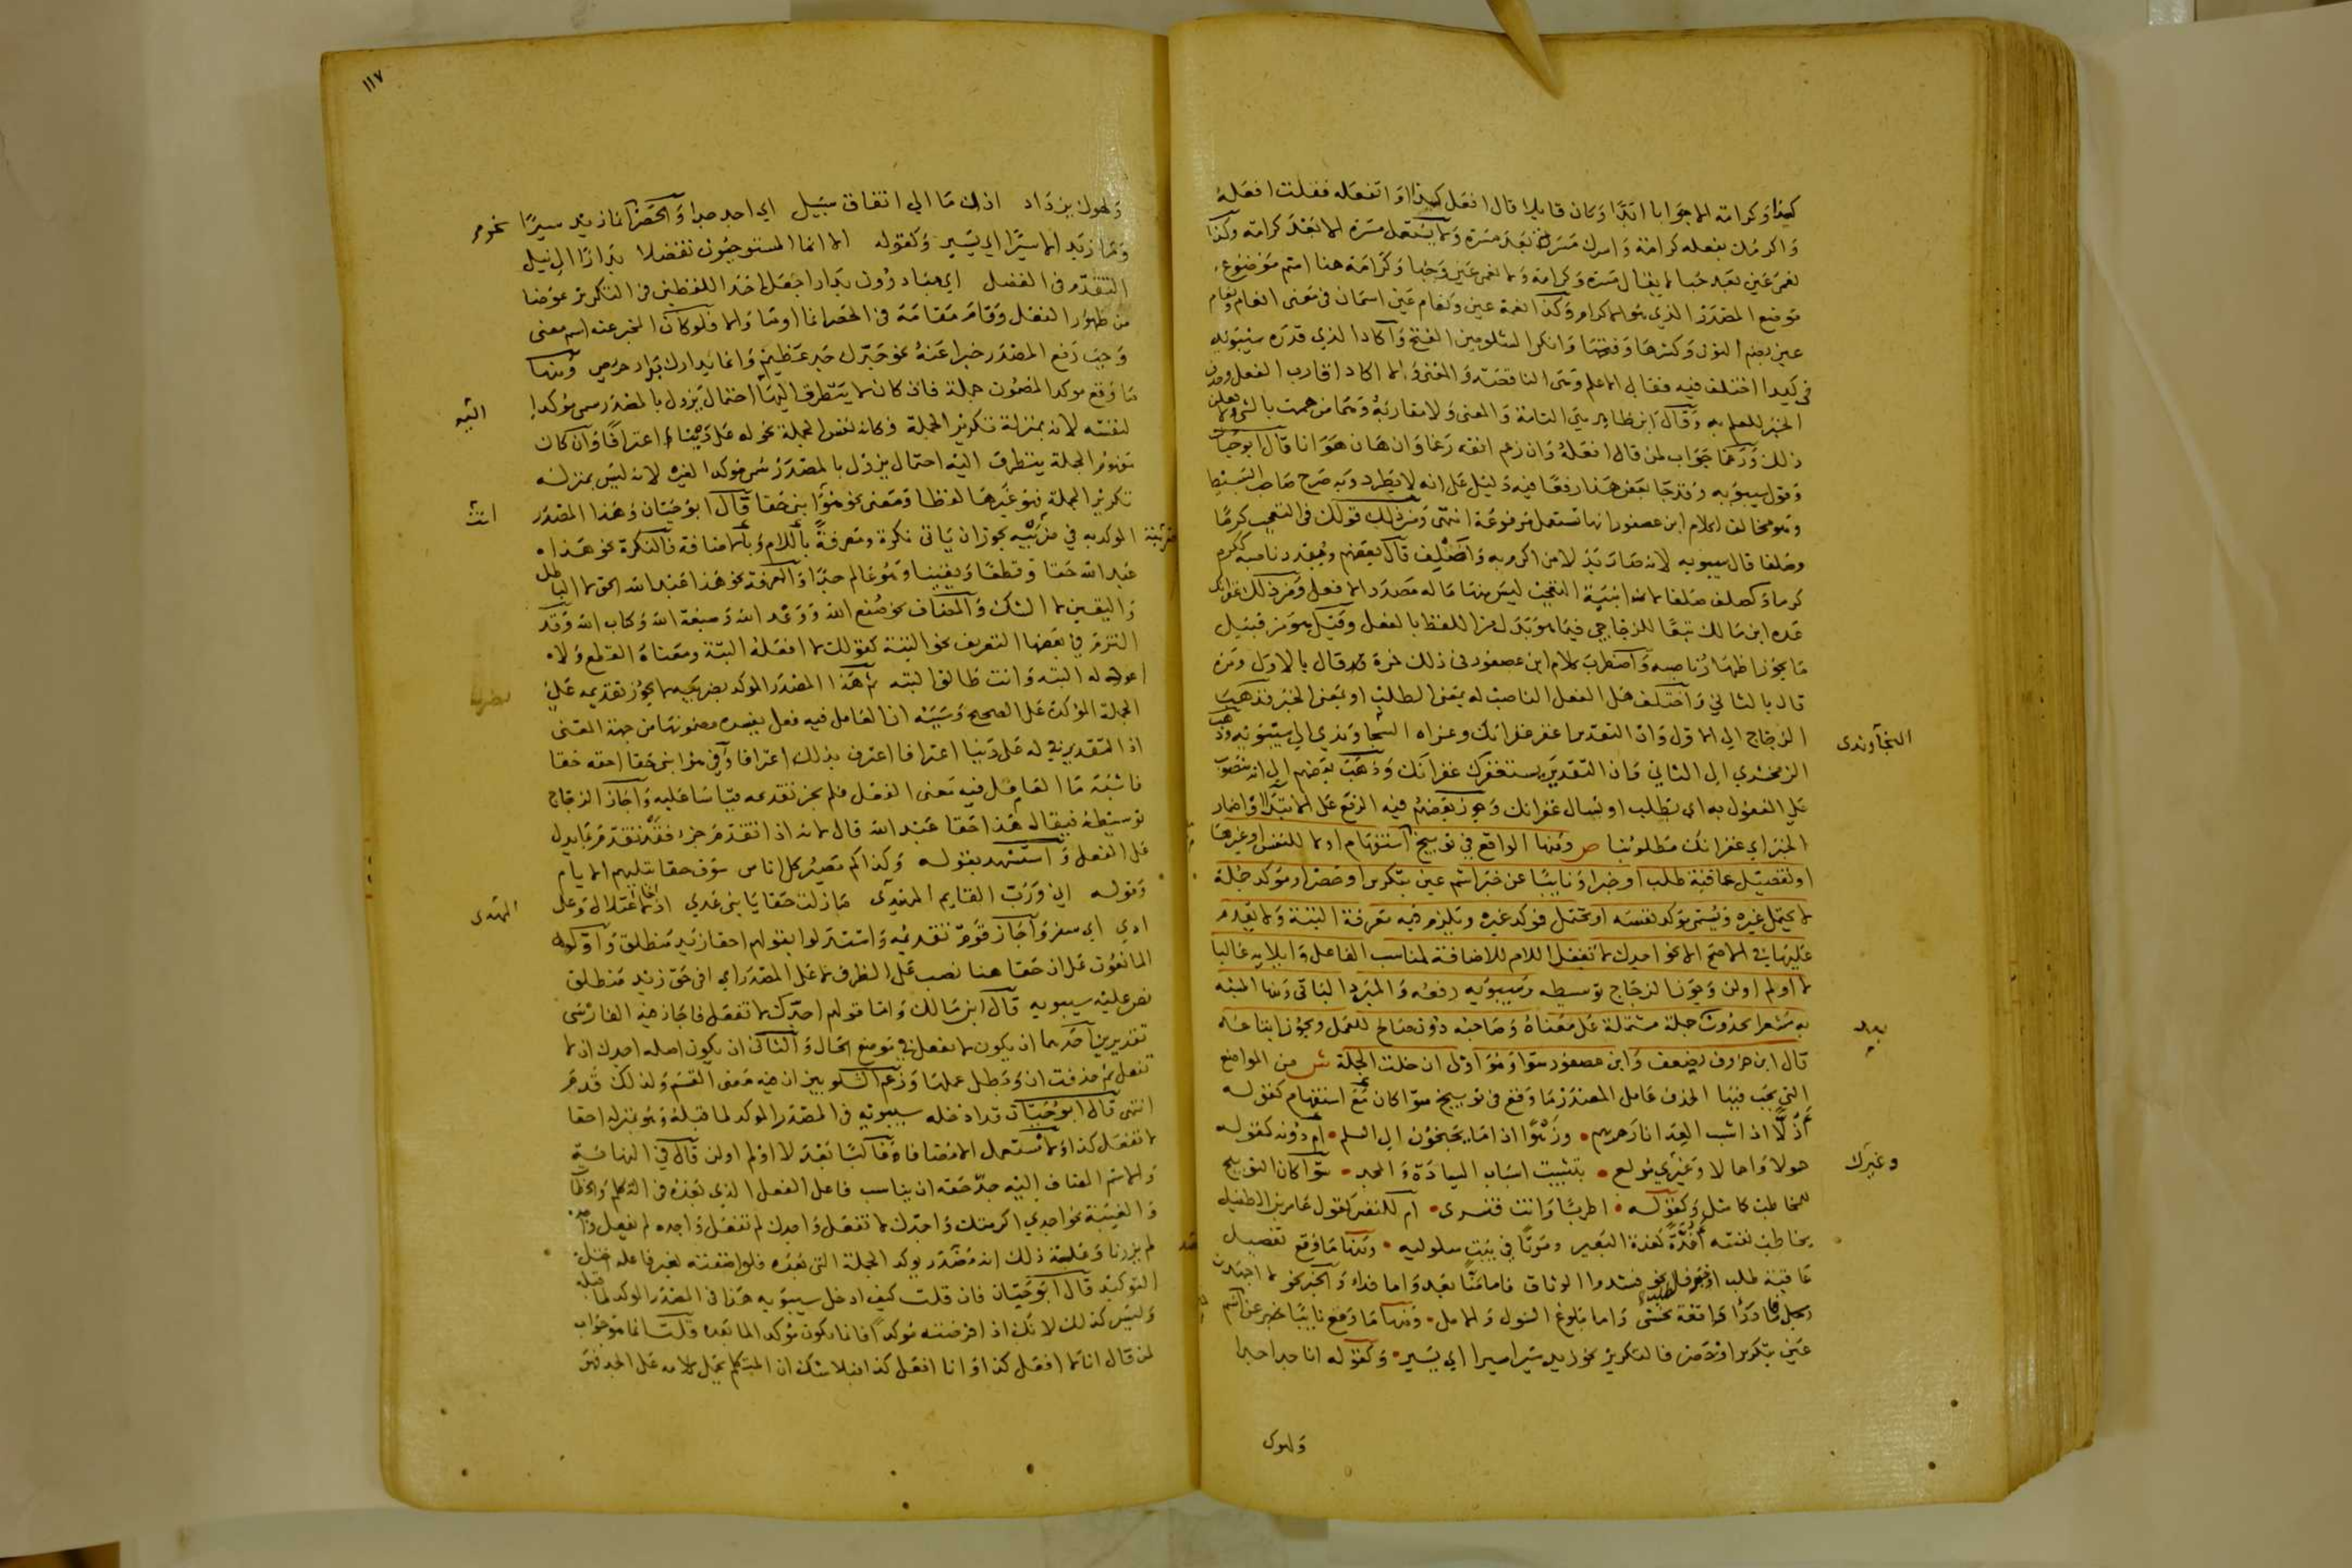 كيدا وكرامة الا جوابا ابدا وكان قايلا قال افعل كيذا او اتفعله فقلت افعله
واكرمك بفعله كرامة واسرك مسرة بعد مسرة ولا يستعمل مسرة الا بعد كرامة وكذا
نعمى عين بعد حبا لا يقال مسرة وكرامة ولا نعمى عين وحبا وكرامة هنا اسم موضوع
موضع المصدر الذي هو الاكرام وكذا نعمة عين ونعام عين اسمان في معنى انعام
عين بضم النون وكسرها وفتحها وانكر الشلوبين الفتح واكادا الذي قدره سيبويه
في كيدا اختلف فيه فقال الاعلم وهي الناقصة والمعنى ولا اكاد اقارب الفعل
الخبر للعلم به وقال ابن طاهر هي التامة والمعنى ولا مقاربة وهما من هممت بالشى
ذلك ورغما جواب لمن قال افعله وان زعم انفه رغما وان هان هوانا قال ابو حيان
وقول سيبويه وقد جا بعض هذا رفعا فيه دليل على انه لا يطرد وبه صرح صاحب البسيط
وهو مخالف لكلام ابن عصفور انها تستعمل مرفوعة انتهى ومن ذلك قولك في التعجب كرما
وصلفا قال سيبويه لانه صار بدلا من اكرم به واصلف قال بعضهم ويقدر ناصبه ككرم
كرما وكصلف صلفا لانه ابنية التعجب ليس منها ما له مصدر الا فعل ومن ذلك غفرانك
عده ابن مالك تبعا للزجاجي فيما هو بدل من اللفظ بالفعل وقيل هو من قبيل
ما يجوز اظهار ناصبه واضطرب كلام ابن عصفور في ذلك فمرة قال بالاول ومرة
قال بالثاني واختلف هل الفعل الناصب له بمعنى الطلب او بمعنى الخبر فذهب
الزجاج الى الاول وان التقدير اغفر غفرانك وعزاه السجاوندي الى سيبويه وذهب
السجاوندى
الزمخشري الى الثاني وان التقدير يستغفرك غفرانك وذهب بعضهم الى انه منصوب
على المفعول به اي نطلب او نسال غفرانك وجوز بعضهم فيه الرفع على الابتدا واضمار
الخبر اي غفرانك مطلوبنا ص ومنها الواقع في توبيخ استفهام او لا للنفس او غيرها
او تفصيل عاقبة طلب او خبر او نايبا عن خبر اسم عين بتكرير او حصر او موكد جملة
لا يحتمل غيره ويسمى موكد نفسه او يحتمل فموكد غيره ويلزم فيه معرفة البتة ولا يقدم
عليها في الاصح الا نحو اجدك لا تفعل اللام للاضافة لمناسب الفاعل وايلايه غالبا
لا او لم او لن وجوز الزجاج توسيطه وسيبويه رفعه والمبرد الباقي ومنها المشبه
به مشعرا بحدوث جملة مشتملة على معناه وصاحبه دون صالح للعمل ويجوز اتباعه
قال ابن خروف بضعف وابن عصفور سوا وهو اولى ان خلت الجملة ش من المواضع
التي يجب فيها الحذف عامل المصدر ما وقع في توبيخ سوا كان مع استفهام كقوله
أذلا اذا شب العدا نار حربهم وزهوا اذا ما يجنحون الى السلم ام دونه كقوله
خمولا واهمالا وغيرك مولع بتثبيت اسباب السيادة والمجد سوا كان التوبيخ
وغيرك
للمخاطب كما مثل وكقوله اطربا وانت قنسرى ام للنفس كقول عامر بن الطفيل
يخاطب نفسه أغدة كغدة البعير وموتا في بيت سلوليه ومنها ما وقع تفصيل
عاقبة طلب او خبر نحو فشدوا الوثاق فاما منا بعد واما فداء والخبر نحو لاجهدن
فاما درأ واقعة تخشى واما بلوغ السول والامل ومنها ما وقع نايبا خبر عن اسم
عين بتكرير او حصر فالتكرير نحو زيد سيرا سيرا اي يسير وكقوله انا جدا جدا
ولهوك
١١٧
ولهوك يزداد اذا ما الى اتفاق سبيل اي اجد جدا والحصر انما زيد سيرا
وما زيد الا سيرا اي يسير وكقوله الا انما المستوجبون تفضلا بدارا الى نيل
التقدم في الفضل اي يبادرون بدارا جعل احد اللفظين في التكرير عوضا
من ظهور الفعل وقام مقامه في الحصر انما او ما والا فلو كان المخبر عنه اسم معنى
وجب رفع المصدر خبرا عنه نحو جدك جد عظيم وانما بدارك بدار حريص ومنها
ما وقع موكدا لمضمون جملة فان كان لا يتطرق اليها احتمال يزول بالمصدر سمى موكدا
لنفسه لانه بمنزلة تكرير الجملة فكانه نفس الجملة نحو له على دينا اعترافا وان كان
مفهوم الجملة يتطرق اليه احتمال يزول بالمصدر سمى موكدا لغيره لانه ليس بمنزلة
تكرير الجملة فهو غيرها لفظا ومعنى نحو هذا ابني حقا قال ابو حيان وهذا المصدر
الموكد به في ضربيه يجوز ان ياتى نكرة ومعرفة باللام وبالاضافة فالنكرة نحو هذا
عبد الله حقا وقطعا ويقينا وهو عالم جدا والمعرفة نحو هذا عبد الله الحق لا الباطل
واليقين لا الشك والمضاف نحو صنع الله ووعد الله وصبغة الله وكتاب الله وقد
التزم في بعضها التعريف نحو البتة كقولك لا افعله البتة ومعناه القطع
له البتة وانت طالق البتة ثم هذا المصدر الموكد بضربيه لا يجوز تقديمه على
الجملة الموكدة على الصحيح وسببه ان العامل فيه فعل يفسره مضمونها من جهة المعنى
اذ التقدير في له على دينا اعترافا اعترف بذلك اعترافا وفي هو ابني حقا احقه حقا
فاشبه ما العامل فيه معنى الفعل فلم يجز تقديمه قياسا عليه واجاز الزجاج
توسيطه فيقال هذا حقا عبد الله قال لانه اذا تقدم جزء فقد تقدم ما يدل
على الفعل واستشهد بقوله وكذاكم مصير كل اناس سوف حقا تبليهم الايام
وقوله اني ورب القايم المهدى ما زلت حقا يا بني عدي
المهدى
ادي اي سفر واجاز قوم تقديمه واستدلوا بقولهم احقا زيد منطلق واوله
المانعون على ان حقا هنا نصب على الظرف لا على المصدر اي افي حق زيد منطلق
نص عليه سيبويه قال ابن مالك واما قولهم اجدك لا تفعل فاجاز فيه الفارسى
تقديرين احدهما ان يكون لا تفعل في موضع الحال والثاني ان يكون اصله اجدك ان لا
تفعل ثم حذفت ان وبطل عملها وزعم الشلوبين ان فيه معنى القسم ولذلك قدم
انتهى قال ابو حيان قد ادخله سيبويه في المصدر الموكد لما قبله وهو بمنزلة احقا
لا تفعل كذا ولا يستعمل الا مضافا وغالبا بعد لا او لم او لن قال في النهاية
والاسم المضاف اليه جد حقه ان يناسب فاعل الفعل الذي بعده في التكلم والخطاب
والغيبة نحو اجدي اكرمتك واجدك لا تفعل واجدك لم تفعل واجده لم يفعل
لم يزرنا وعلة ذلك انه مصدر يوكد الجملة التي بعده فلو اضفته لغير فاعله اختل
التوكيد قال ابو حيان فان قلت كيف ادخل سيبويه هذا في المصدر الموكد لما قبله
وليس كذلك لانك اذا فرضته موكدا فانما يكون موكدا لما بعده قلت انما هو جواب
لمن قال انا لا افعل كذا او انا افعل كذا فبلا شك ان المتكلم يحمل كلامه على الجد